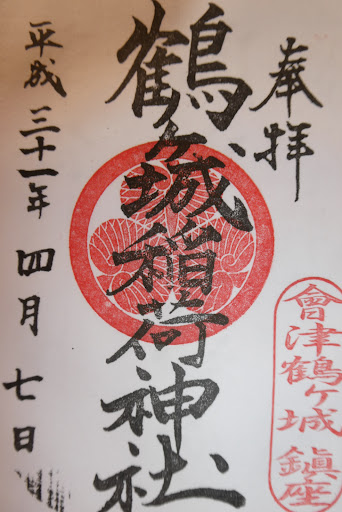 奉拝
會津鶴ヶ城鎮座
鶴ヶ城稲荷神社
平成三十一年四月七日